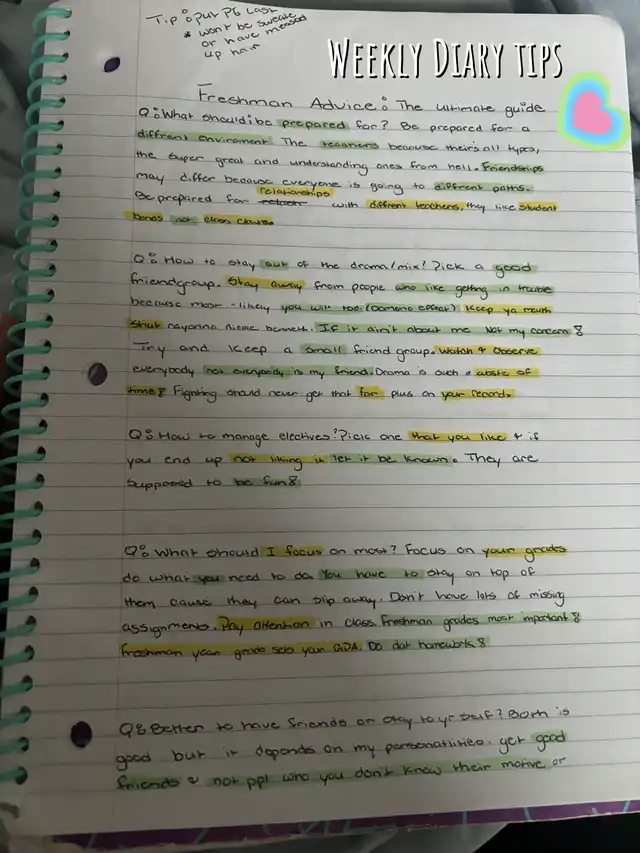 Tip: put PE last
* wont be sweate
or have messed
up hair
WEEKLY DIARY TIPS
Freshman Advice: The ultimate guide
Q: What should i be prepared for? Be prepared for a
diffrent enviroment. The teachers because their's all types,
the super great and understanding ones from hell. Friendships
may differ because everyone is going to diffrent paths.
relationships
Be prepared for with diffrent teachers, they like student
bonds not class clowns.
Q: How to stay out of the drama/mix? Pick a good
friendgroup. Stay away from people who like getting in trouble
because most-likely you will too. (Domeno effect) Keep ya mouth
shut rayonna nicole bennett. If it ain't about me Not my concern!
Try and keep a small friend group. Watch & Observe
everybody not everybody is my friend. Drama is such a waste of
time! Fighting should never get that far plus on your record.
Q: How to manage electives? Pick one that you like & if
you end up not liking it let it be known. They are
supposed to be fun!
Q: What should I focus on most? Focus on your grades
do what you need to do. You have to stay on top of
them cause they can slip away. Don't have lots of missing
assignments. Pay attention in class. Freshman grades most important!
Freshman year grade sets your GPA. Do dat homework!
Q: Better to have friends or stay to yr self? Both is
good but it depends on my personalities. get good
friends & not ppl who you don't know their motive or